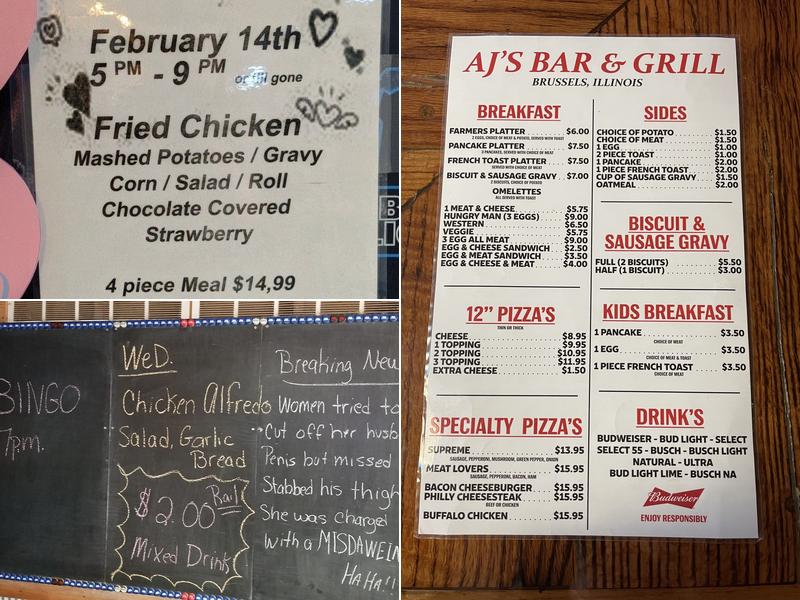 February 14th
5 PM - 9 PM or till gone
Fried Chicken
Mashed Potatoes / Gravy
Corn / Salad / Roll
Chocolate Covered
Strawberry
4 piece Meal $14,99
BINGO
7pm.
WeD.
Chicken Alfredo
Salad, Garlic
Bread
$2.00 Rail
Mixed Drink
Breaking New
Women tried to
Cut off her husb
Penis but missed
Stabbed his thigh
She was charged
with a MISDAWEIN
HA HA!!
AJ'S BAR & GRILL
BRUSSELS, ILLINOIS
BREAKFAST
FARMERS PLATTER $6.00
2 EGGS, CHOICE OF MEAT & POTATO, SERVED WITH TOAST
PANCAKE PLATTER $7.50
3 PANCAKES, SERVED WITH CHOICE OF MEAT
FRENCH TOAST PLATTER $7.50
SERVED WITH CHOICE OF MEAT
BISCUIT & SAUSAGE GRAVY $7.00
2 BISCUITS, CHOICE OF POTATO
OMELETTES
ALL SERVED WITH TOAST
1 MEAT & CHEESE $5.75
HUNGRY MAN (3 EGGS) $9.00
WESTERN $6.50
VEGGIE $5.75
3 EGG ALL MEAT $9.00
EGG & CHEESE SANDWICH $2.50
EGG & MEAT SANDWICH $3.50
EGG & CHEESE & MEAT $4.00
12" PIZZA'S
THIN OR THICK
CHEESE $8.95
1 TOPPING $9.95
2 TOPPING $10.95
3 TOPPING $11.95
EXTRA CHEESE $1.50
SPECIALTY PIZZA'S
SUPREME $13.95
SAUSAGE, PEPPERONI, MUSHROOM, GREEN PEPPER, ONION
MEAT LOVERS $15.95
SAUSAGE, PEPPERONI, BACON, HAM
BACON CHEESEBURGER $15.95
PHILLY CHEESESTEAK $15.95
BEEF OR CHICKEN
BUFFALO CHICKEN $15.95
SIDES
CHOICE OF POTATO $1.50
CHOICE OF MEAT $1.50
1 EGG $1.00
2 PIECE TOAST $1.00
1 PANCAKE $2.00
1 PIECE FRENCH TOAST $2.00
CUP OF SAUSAGE GRAVY $1.50
OATMEAL $2.00
BISCUIT &
SAUSAGE GRAVY
FULL (2 BISCUITS) $5.50
HALF (1 BISCUIT) $3.00
KIDS BREAKFAST
1 PANCAKE $3.50
CHOICE OF MEAT
1 EGG $3.50
CHOICE OF MEAT & TOAST
1 PIECE FRENCH TOAST $3.50
CHOICE OF MEAT
DRINK'S
BUDWEISER - BUD LIGHT - SELECT
SELECT 55 - BUSCH - BUSCH LIGHT
NATURAL - ULTRA
BUD LIGHT LIME - BUSCH NA
Budweiser
ENJOY RESPONSIBLY